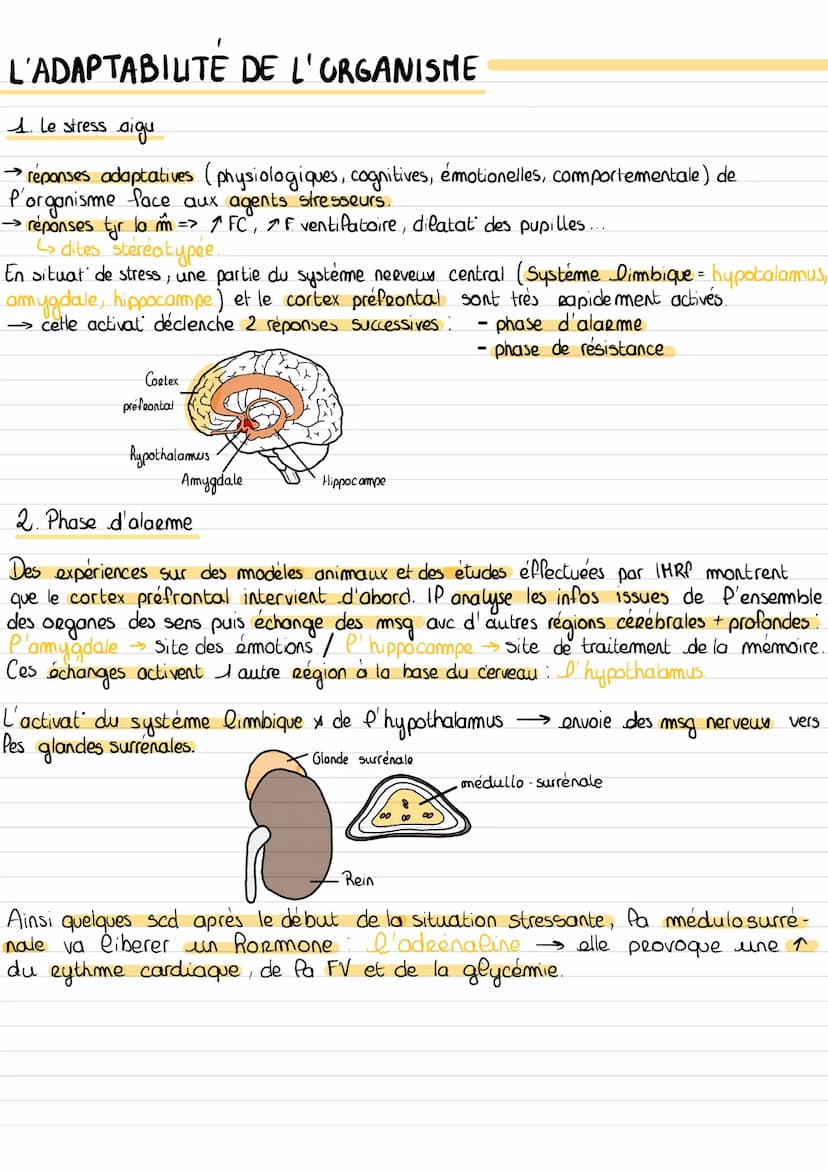 L'ADAPTABILITÉ DE L'ORGANISME
1. Le stress aigu
→ réponses adaptatives (physiologiques, cognitives, émotionelles, comportementale) de
l'organisme face aux agents stresseurs.
→ réponses tjr la m̂ => ↑ FC, ↗ F ventilatoire, dilatat° des pupilles...
↳ dites stéréotypée.
En situat° de stress, une partie du système nerveux central (Système limbique = hypotalamus,
amygdale, hippocampe) et le cortex préfrontal sont très rapidement activés.
→ cette activat° déclenche 2 réponses successives : - phase d'alarme
- phase de résistance
Cortex
préfrontal
hypothalamus
Amygdale
Hippocampe
2. Phase d'alarme
Des expériences sur des modèles animaux et des études éffectuées par IMRF montrent
que le cortex préfrontal intervient d'abord. Il analyse les infos issues de l'ensemble
des organes des sens puis échange des msg avc d'autres régions cérébrales + profondes :
l'amygdale → site des émotions / l'huppocampe → site de traitement de la mémoire.
Ces échanges activent 1 autre région à la base du cerveau : l'hypothalamus.
L'activat° du système limbique x de l'hypothalamus → envoie des msg nerveux vers
les glandes surrénales.
Glande surrénale
médullo-surrénale
Rein
Ainsi quelques scd après le début de la situation stressante, la médulosurré-
nale va liberer un hormone : l'adrénaline → elle provoque une ↑
du rythme cardiaque, de la FV et de la glycémie.